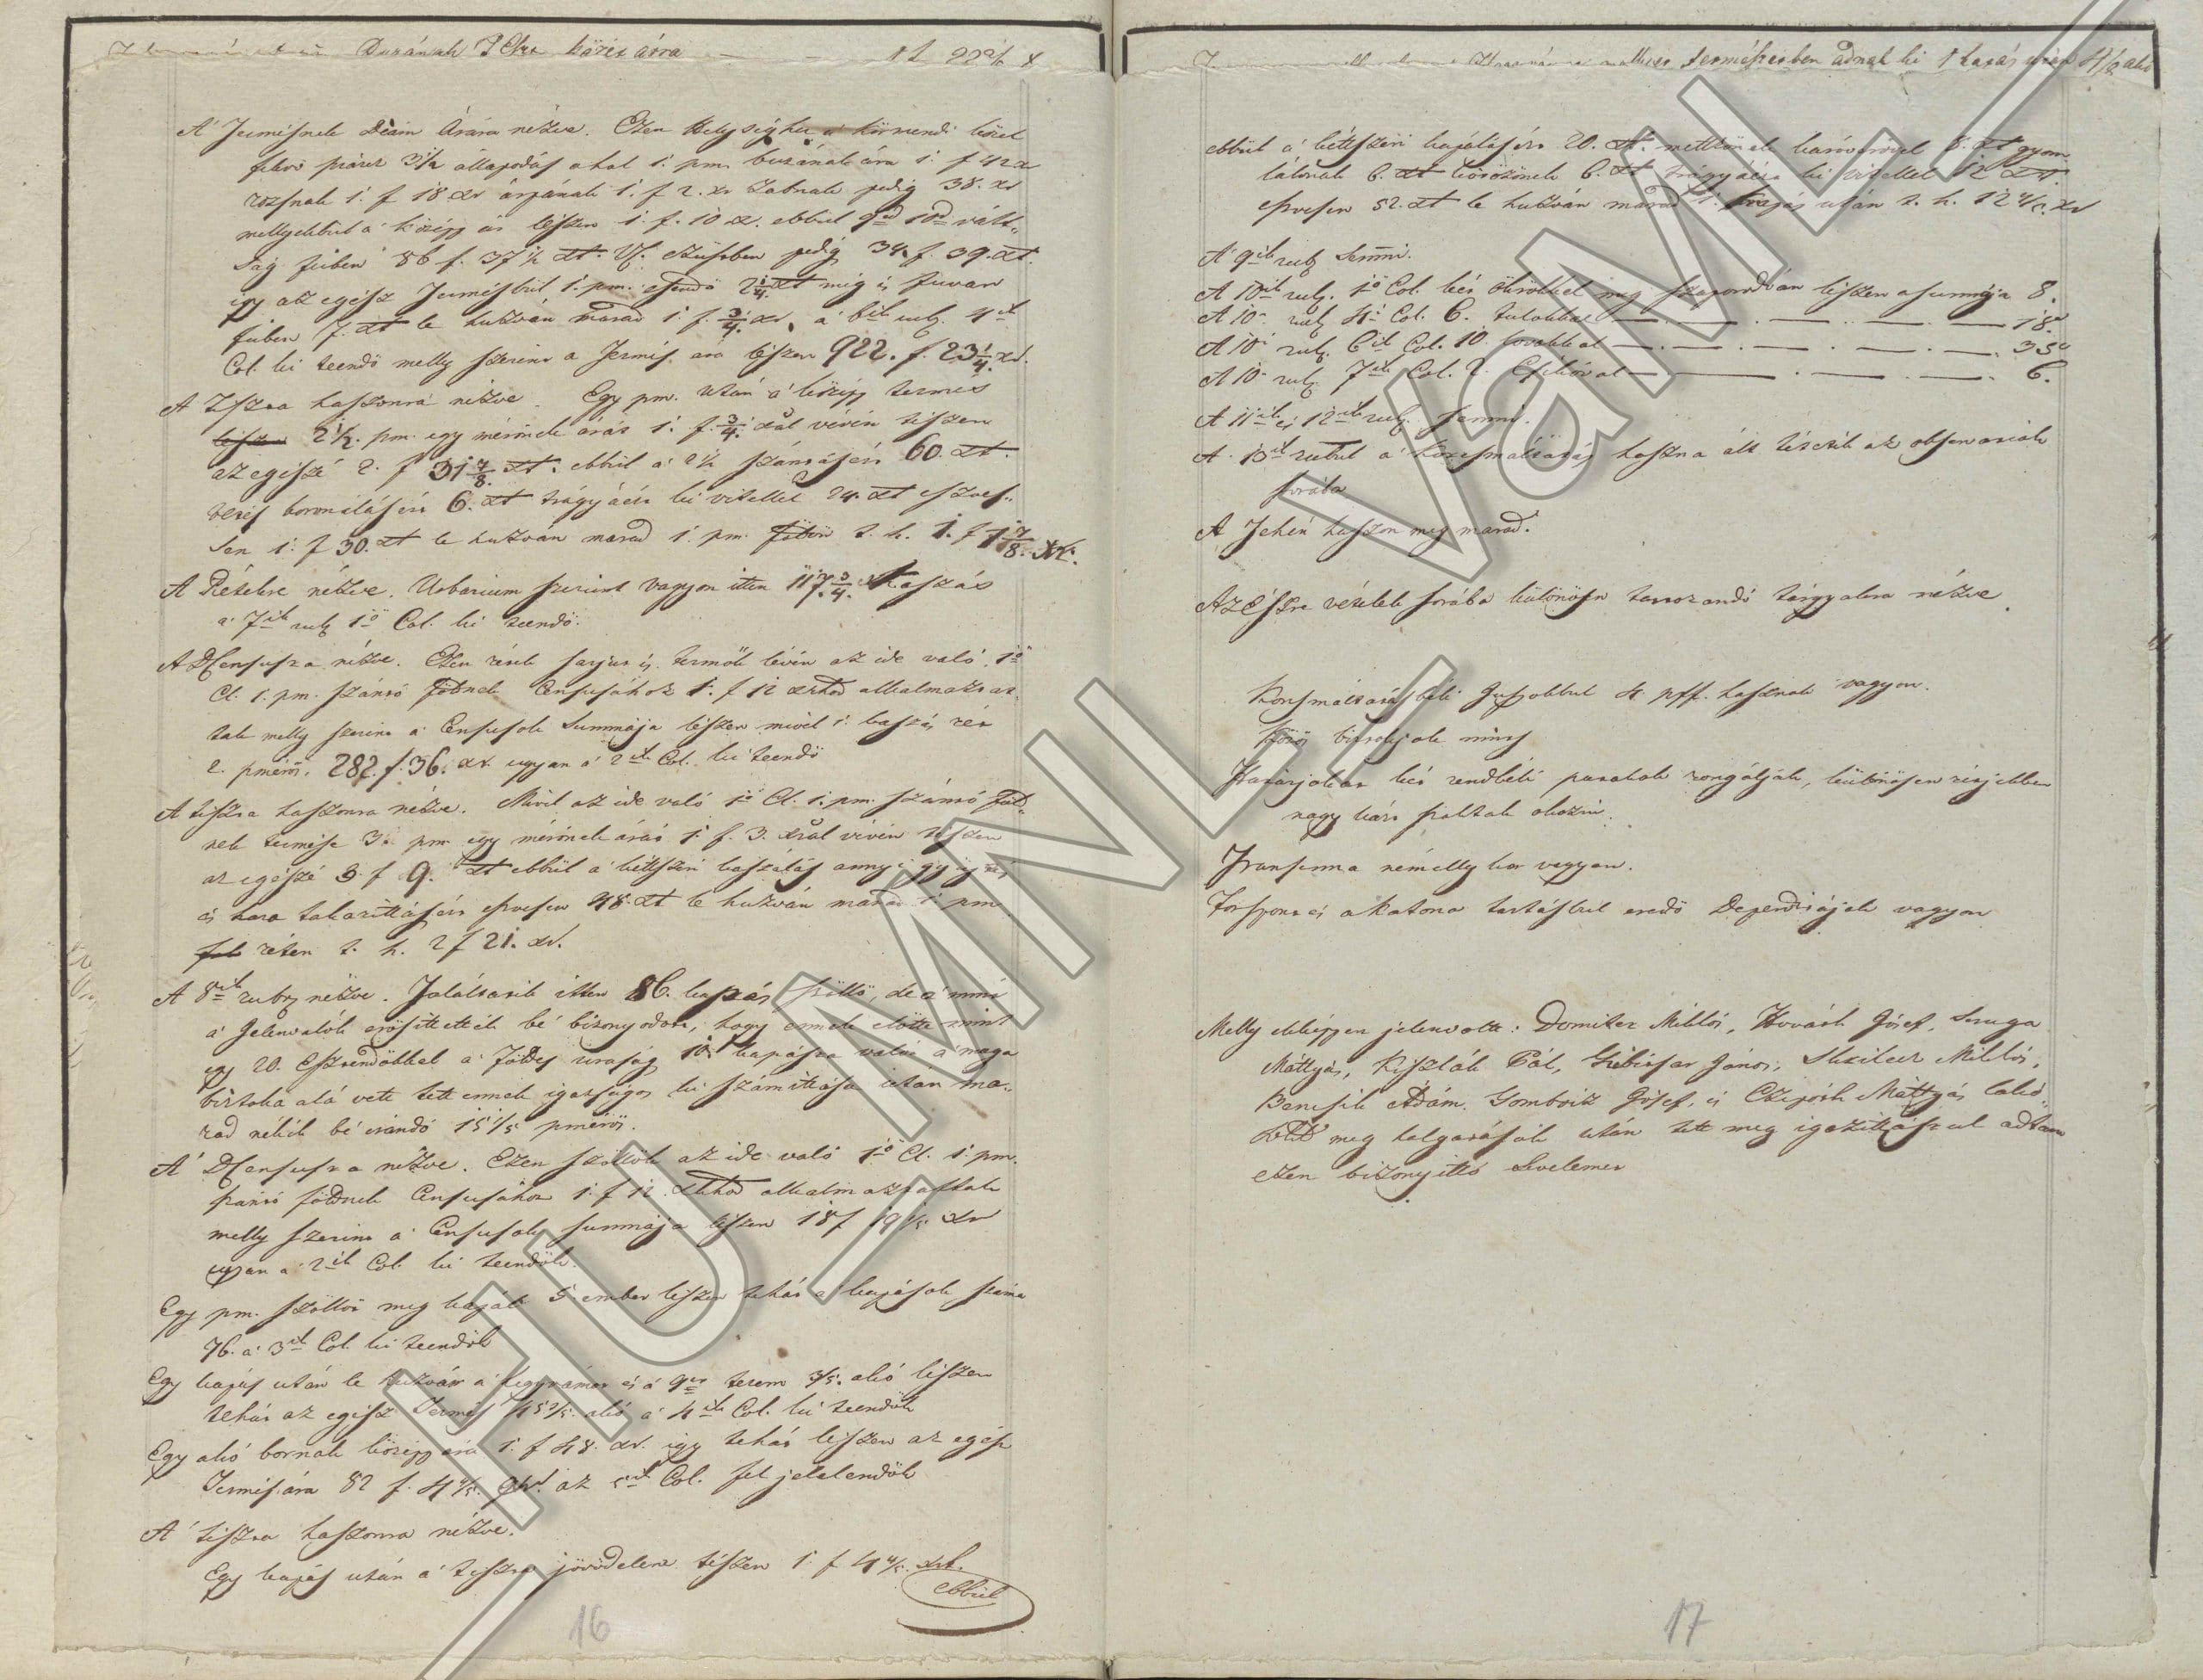 Buzának 1 Cla közép ára — 1 f 22 2/4 x
A' Termésnek Deám Árára nézve. Ezen Helységhez a' körmendi közel
fekvő piacz 3 1/2 állapodás ahol 1. pm. buzának ára 1. f 42 x
rozsnak 1. f 18 xr árpának 1. f 2. xr Zabnak pedig 38. xr
mellyekbül a' közép ár lészen 1. f. 10 x. ebbül 9ed 10ed vált-
ság fűben 86 f. 37 1/2 xr. Uf. szüsben pedig 34 f 39. xr.
így az egész Termésbül 1. pm. esendő 2 1/4 xr még is fuvar
fűben 7. xr le huzván marad 1. f. 3/4 xr, a' 6ik rub. 4ik
Col. ki teendő melly szerint a Termés ára lészen 922. f. 23 1/4 xr.
A Tiszta haszonra nézve. Egy pm. után a' közép termés
2 1/2. pm. egy mérőnek árát 1. f. 3/4 xrúl vévén teszen
az egészé 2. f 31 7/8 xr. ebbül a' 2 1/2 szántásért 60. xr.
vetés boronálásért 6. xr trágyáért ki vitellel 24. xr eszves-
sen 1. f 30. xr le huzván marad 1. pm. földön t. h. 1. f 1 7/8 xr.
A Rétekre nézve. Urbarium szerint vagyon itten 117 3/4. Kaszás
a' 7ik rub 1ő Col. ki teendő.
A Censusra nézve. Ezen rétek sarjut is termők lévén az ide való 1ő
Cl. 1. pm. szántó földnek Censusához 1. f 12 xrhoz alkalmaztat-
tak melly szerint a' Censusok Summája lészen mivel 1. kaszás rét
2. pmérős. 282. f. 36. xr. ugyan a' 2ik Col. ki teendő
A tiszta haszonra nézve. Mivel az ide való 1ő Cl. 1. pm. szántó föld-
nek termése 3. pm. egy mérőnek árát 1. f. 3. xrúl vévén teszen
az egészé 3. f 9. xr ebbül a' kétszeri kaszálás annyi
és haza takarittásért eszvesen 48. xr le huzván marad 1. pm
réten t. h. 2 f 21. xr.
A 8ik rubr nézve. Találtatik itten 86. kapás szöllő, de a' mint
a' Jelenvalók erősittették bé bizonyodott, hogy ennek előtte mint
egy 20. Esztendőkkel a' földes uraság 10. kapásra valót a' maga
birtoka alá vett tett ennek igazságos ki számittása után ma-
rad nékik bé irandó 15 1/5 pmérős.
A' Censusra nézve. Ezen szöllők az ide való 1ő Cl. 1. pm.
szántó földnek Censusához 1. f 12 xrhoz alkalmaztattak
melly szerint a' Censusok summája lészen 18 f 19 1/5 xr
ugyan a' 2ik Col. ki teendők.
Egy pm. szöllőt meg kapál 5. ember lészen tehát a' kapások száma
76. a' 3ik Col. ki teendők
Egy kapás után le huzván a' hegyvámot és a' 9et terem 3/5. akó lészen
tehát az egész Termés 45 3/5. akó a' 4ik Col. ki teendők
Egy akó bornak közép ára 1. f 48. xr. így tehát lészen az egész
Termés ára 82 f. 4 4/5. xr. az 5ik Col. fel jelelendők
A' tiszta haszonra nézve.
Egy kapás után a' tiszta jövödelem tészen 1. f 4 4/5. xrt.
ebbül
16
természetben adnak ki 1 kapás után 4/8 akó
ebbül a' kétszeri kapálásért 20. xr. mettőnek karózónak 8. xr gyom
lálónak 6. xr kötözőnek 6. xr trágyáért ki vitellel 12 xr.
eszvesen 52. xr le huzván marad 1. kapás után t. h. 12 4/5. xr
A' 9ik rub Semmi.
A 10ik rub. 1ő Col. két ökrökkel meg szaporodván lészen a summája 8.
A 10ik rub 4ik Col. 6. tulokkal — 18.
A 10ik rub. 6ik Col. 10. lovakkal — 35
A 10ik rub. 7ik Col. 2. Csikóval — 6.
A 11ik és 12ik rub. semmi.
A 13ik rubul a' korcsmáltatás haszna ált tétetik az observatiók
sorába
A Tehén haszon meg marad.
Az Észre vételek sorába különösen tartozandó tárgyakra nézve
Korcsmáltatásbéli Jussokbul 4. pff. hasznok vagyon.
Közös birtokjok nincs
Határjokat két rendbéli patakok rongálják, különösen rétjekben
nagy kárt szoktak okozni.
Transenna némellykor vagyon.
Forspont és a Katona tartásbul eredő Dependtiájok vagyon
Melly ekképpen jelenvoltt: Domiter Miklós, Horváth Jósef, Sruga
Máttyás, Kisztlák Pál, Gubicsar János, Skrilecz Miklós,
Bencsik Ádám, Gombocz Jósef, és Czipoth Máttyás lakó-
soktúl meg halgatások után tett meg igazittásrul adtam
ezen bizonyittó Levelemet
17
HU MNL VaML